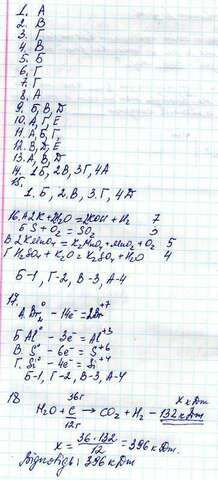 1. А
2. В
3. Г
4. В
5. Б
6. Г
7. Г
8. А
9. Б, В, Д
10. А, Г, Е
11. А, Б, Г
12. В, Д, Е
13. А, В, Д
14. 1Б, 2В, 3Г, 4А
15.
1. Б, 2. В, 3. Г, 4Д
16. А 2K + H₂O = 2KOH + H₂ 7
Б S + O₂ = SO₂ 3
В 2KMnO₄ = K₂MnO₄ + MnO₂ + O₂ 5
Г H₂SO₄ + K₂O = K₂SO₄ + H₂O 4
Б-1, Г-2, В-3, А-4
17.
А. Br₂⁰ - 14e⁻ = 2Br⁺⁷
Б Al⁰ - 3e⁻ = Al⁺³
В. S⁰ - 6e⁻ = S⁺⁶
Г. Si⁰ - 4e⁻ = Si⁺⁴
Б-1, Г-2, В-3, А-4
18 36г x кДж
H₂O + C → CO₂ + H₂ - 132 кДж
12г
x = 36·132/12 = 396 кДж.
Відповідь: 396 кДж